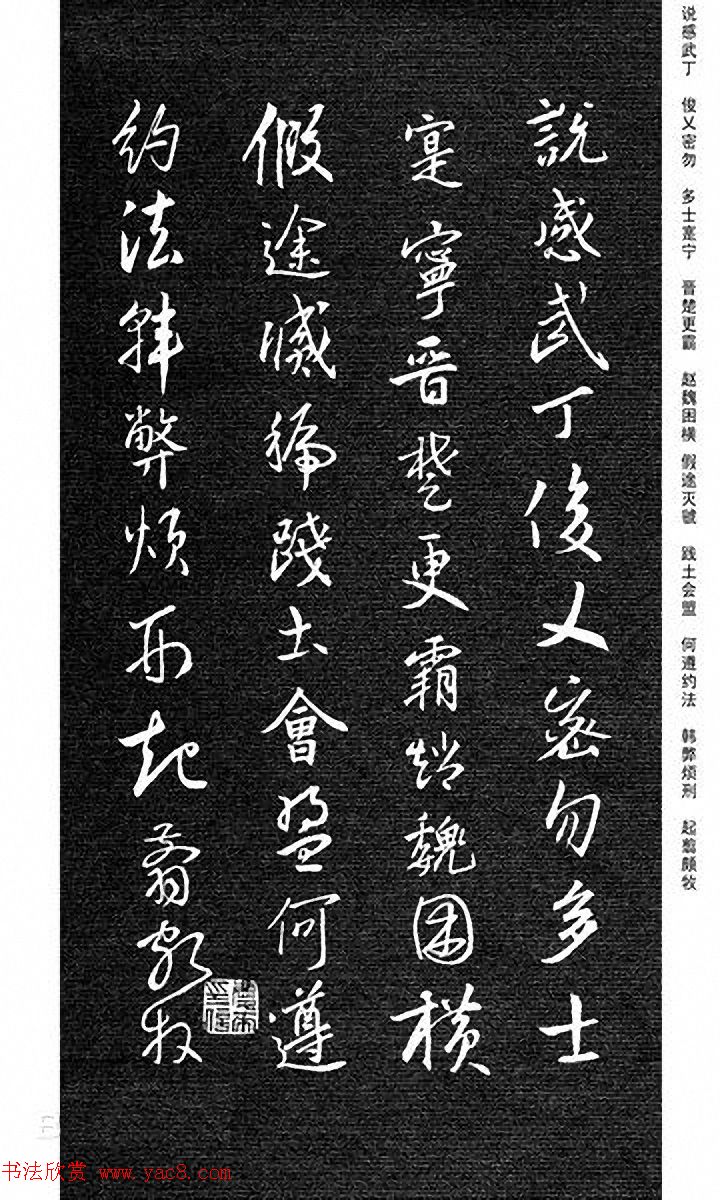 说感武丁 俊乂密勿 多士寔宁 晋楚更霸 赵魏困横 假途灭虢 践土会盟 何遵约法 韩弊烦刑 起翦颇牧
說感武丁俊乂密勿多士
寔寧晉楚更霸趙魏困橫
假途滅虢踐土會盟何遵
約法韓弊煩刑起翦頗牧
书法欣赏 www.yac8.com